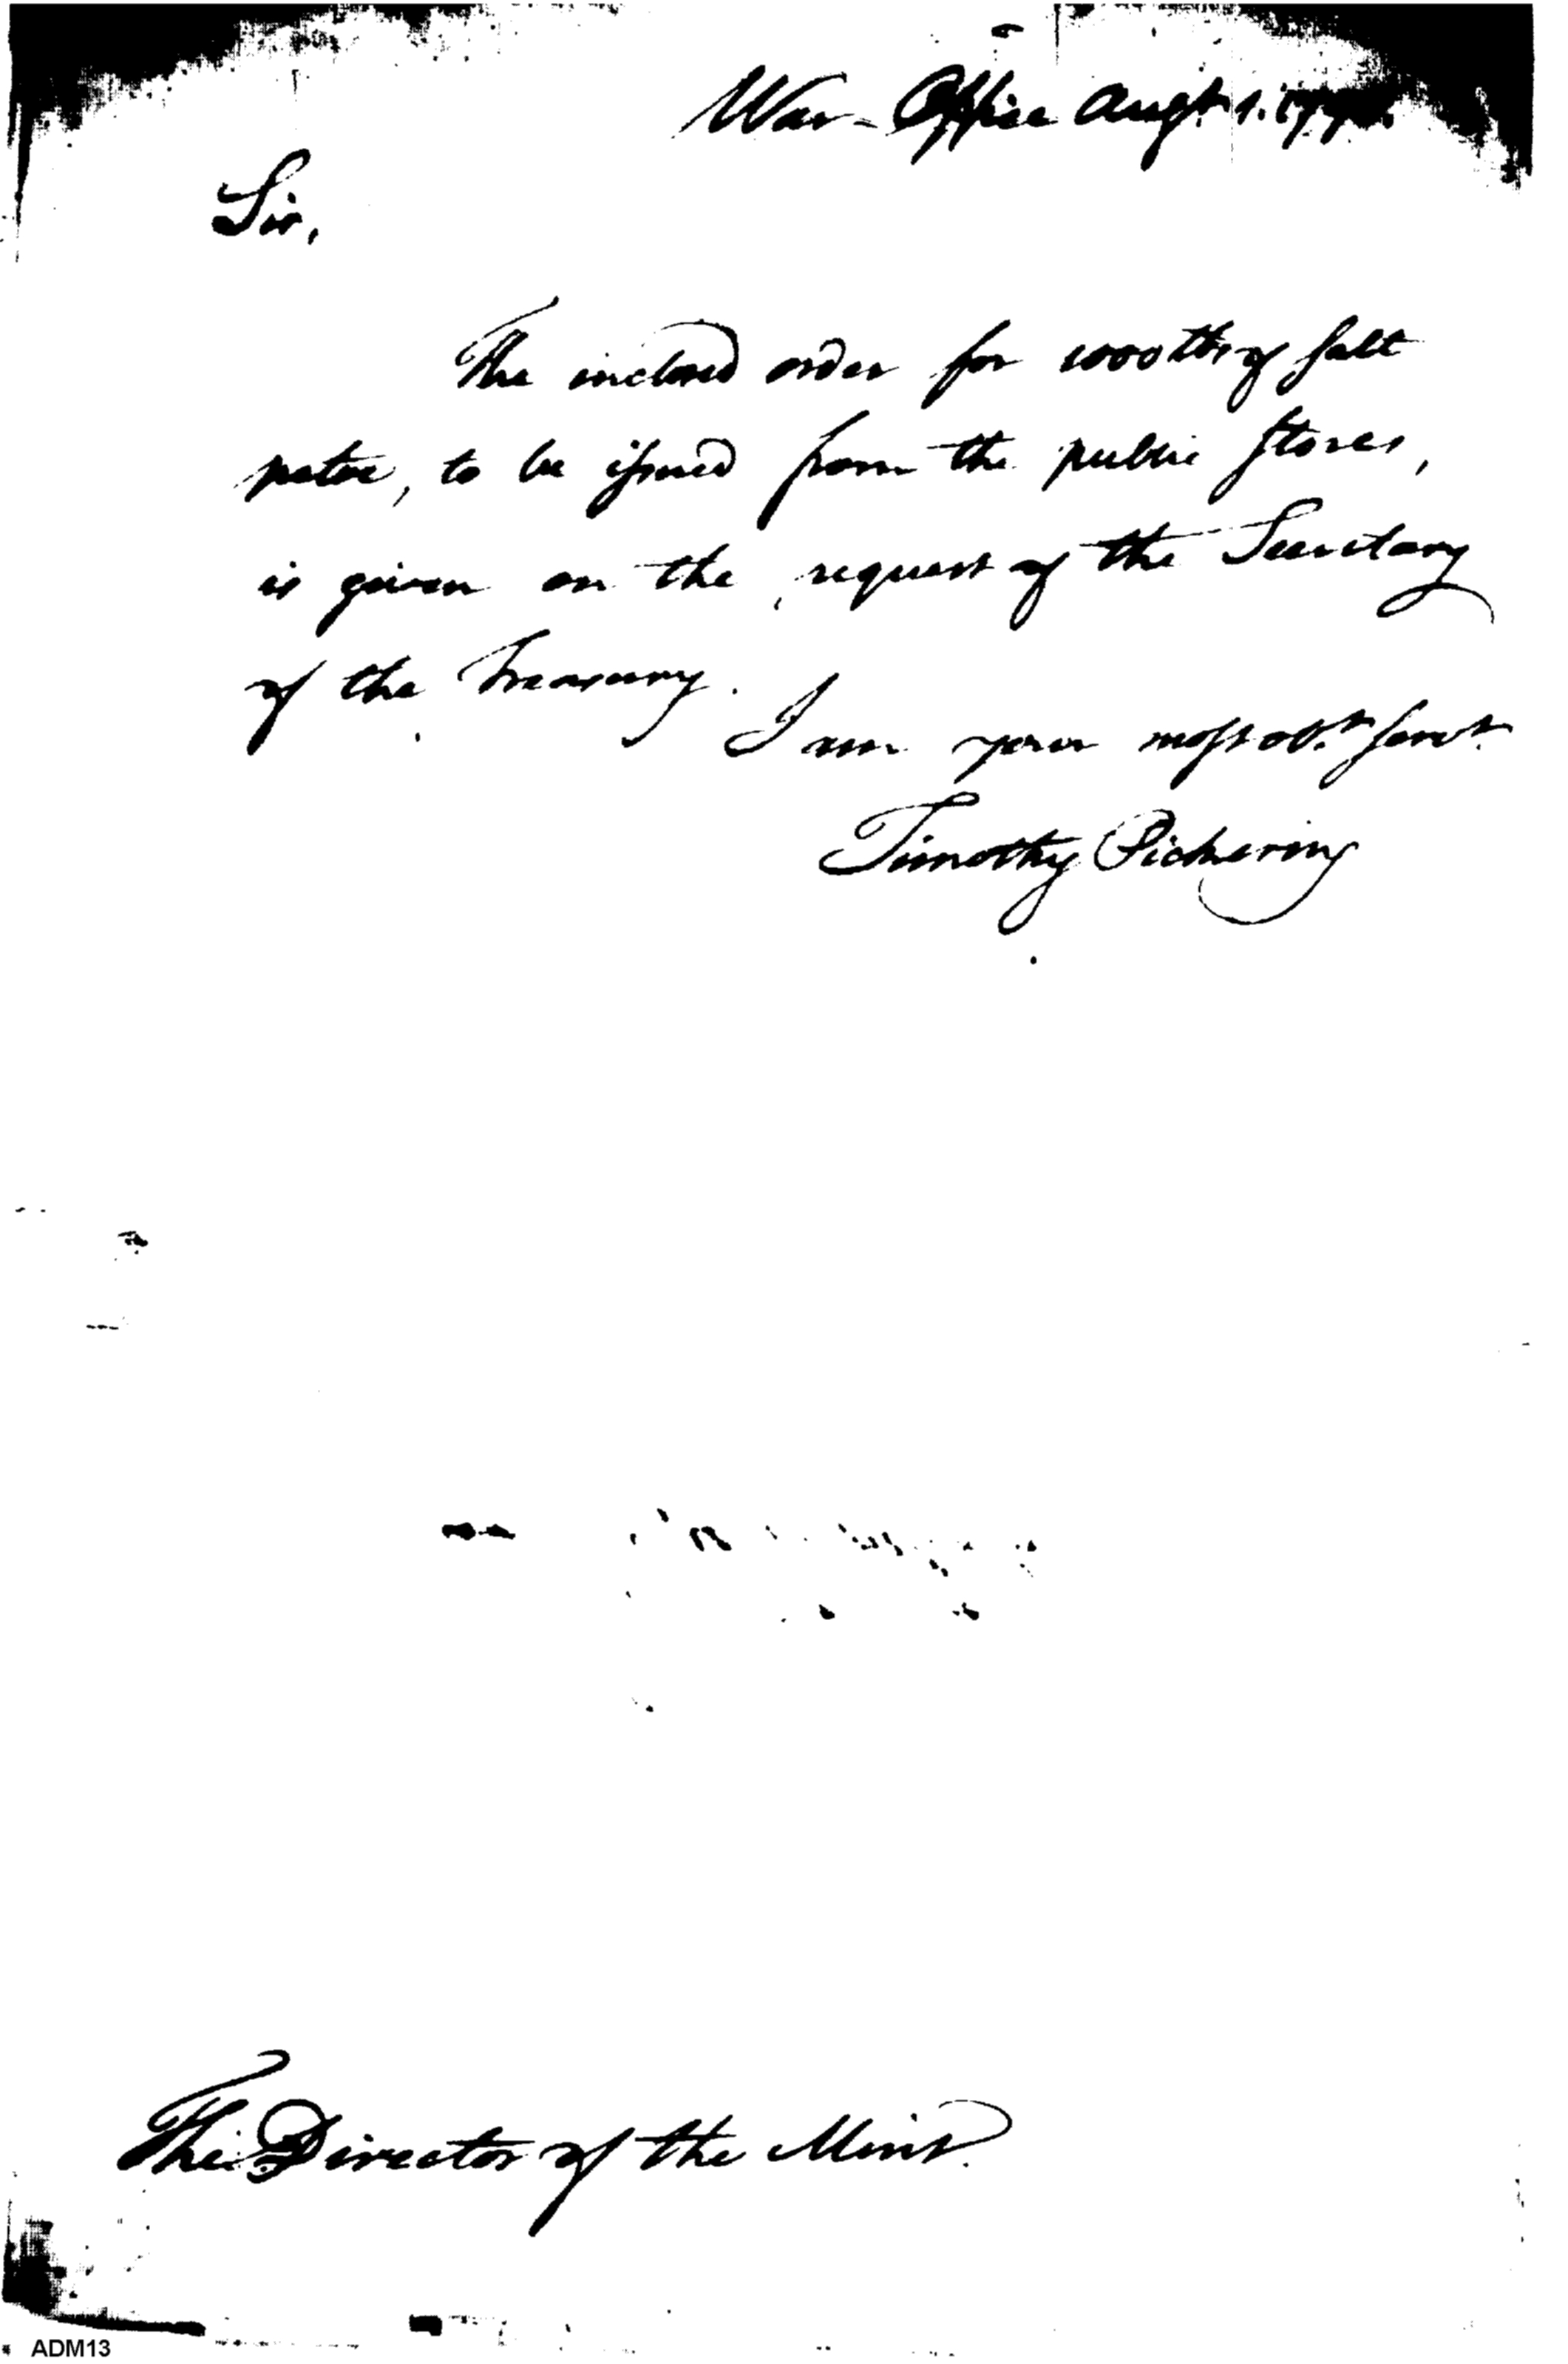 War-Office Augt. 1. 179
Sir,
The inclosed order for 1000 lbs of salt
petre, to be issued from the public stores,
is given on the request of the Secretary
of the Treasury.
I am your most obt. servt.
Timothy Pickering
The Director of the Mint.
ADM13